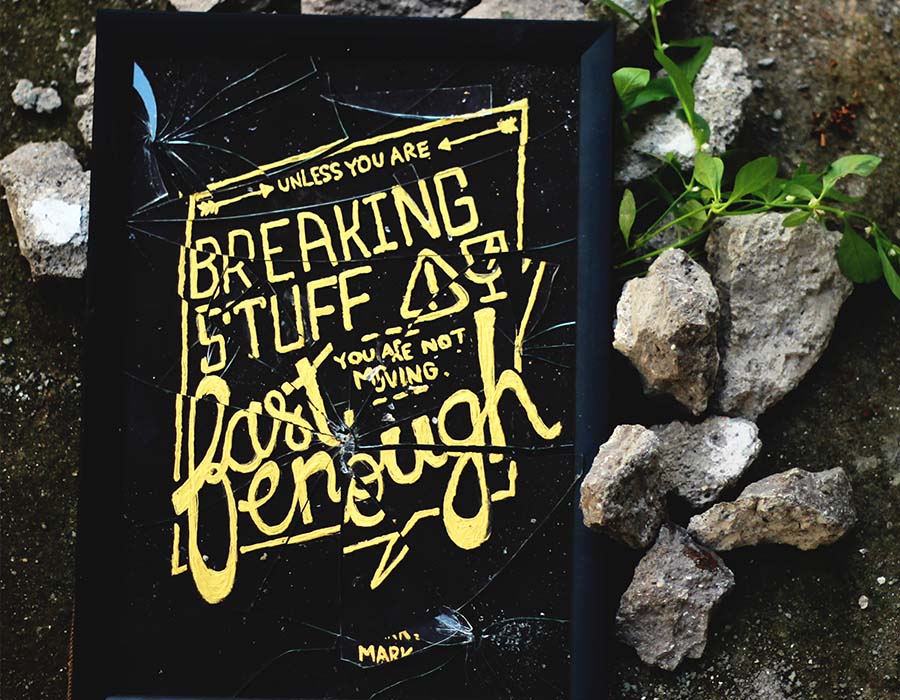 UNLESS YOU ARE
BREAKING
STUFF
YOU ARE NOT
MOVING.
fast
enough
MARK